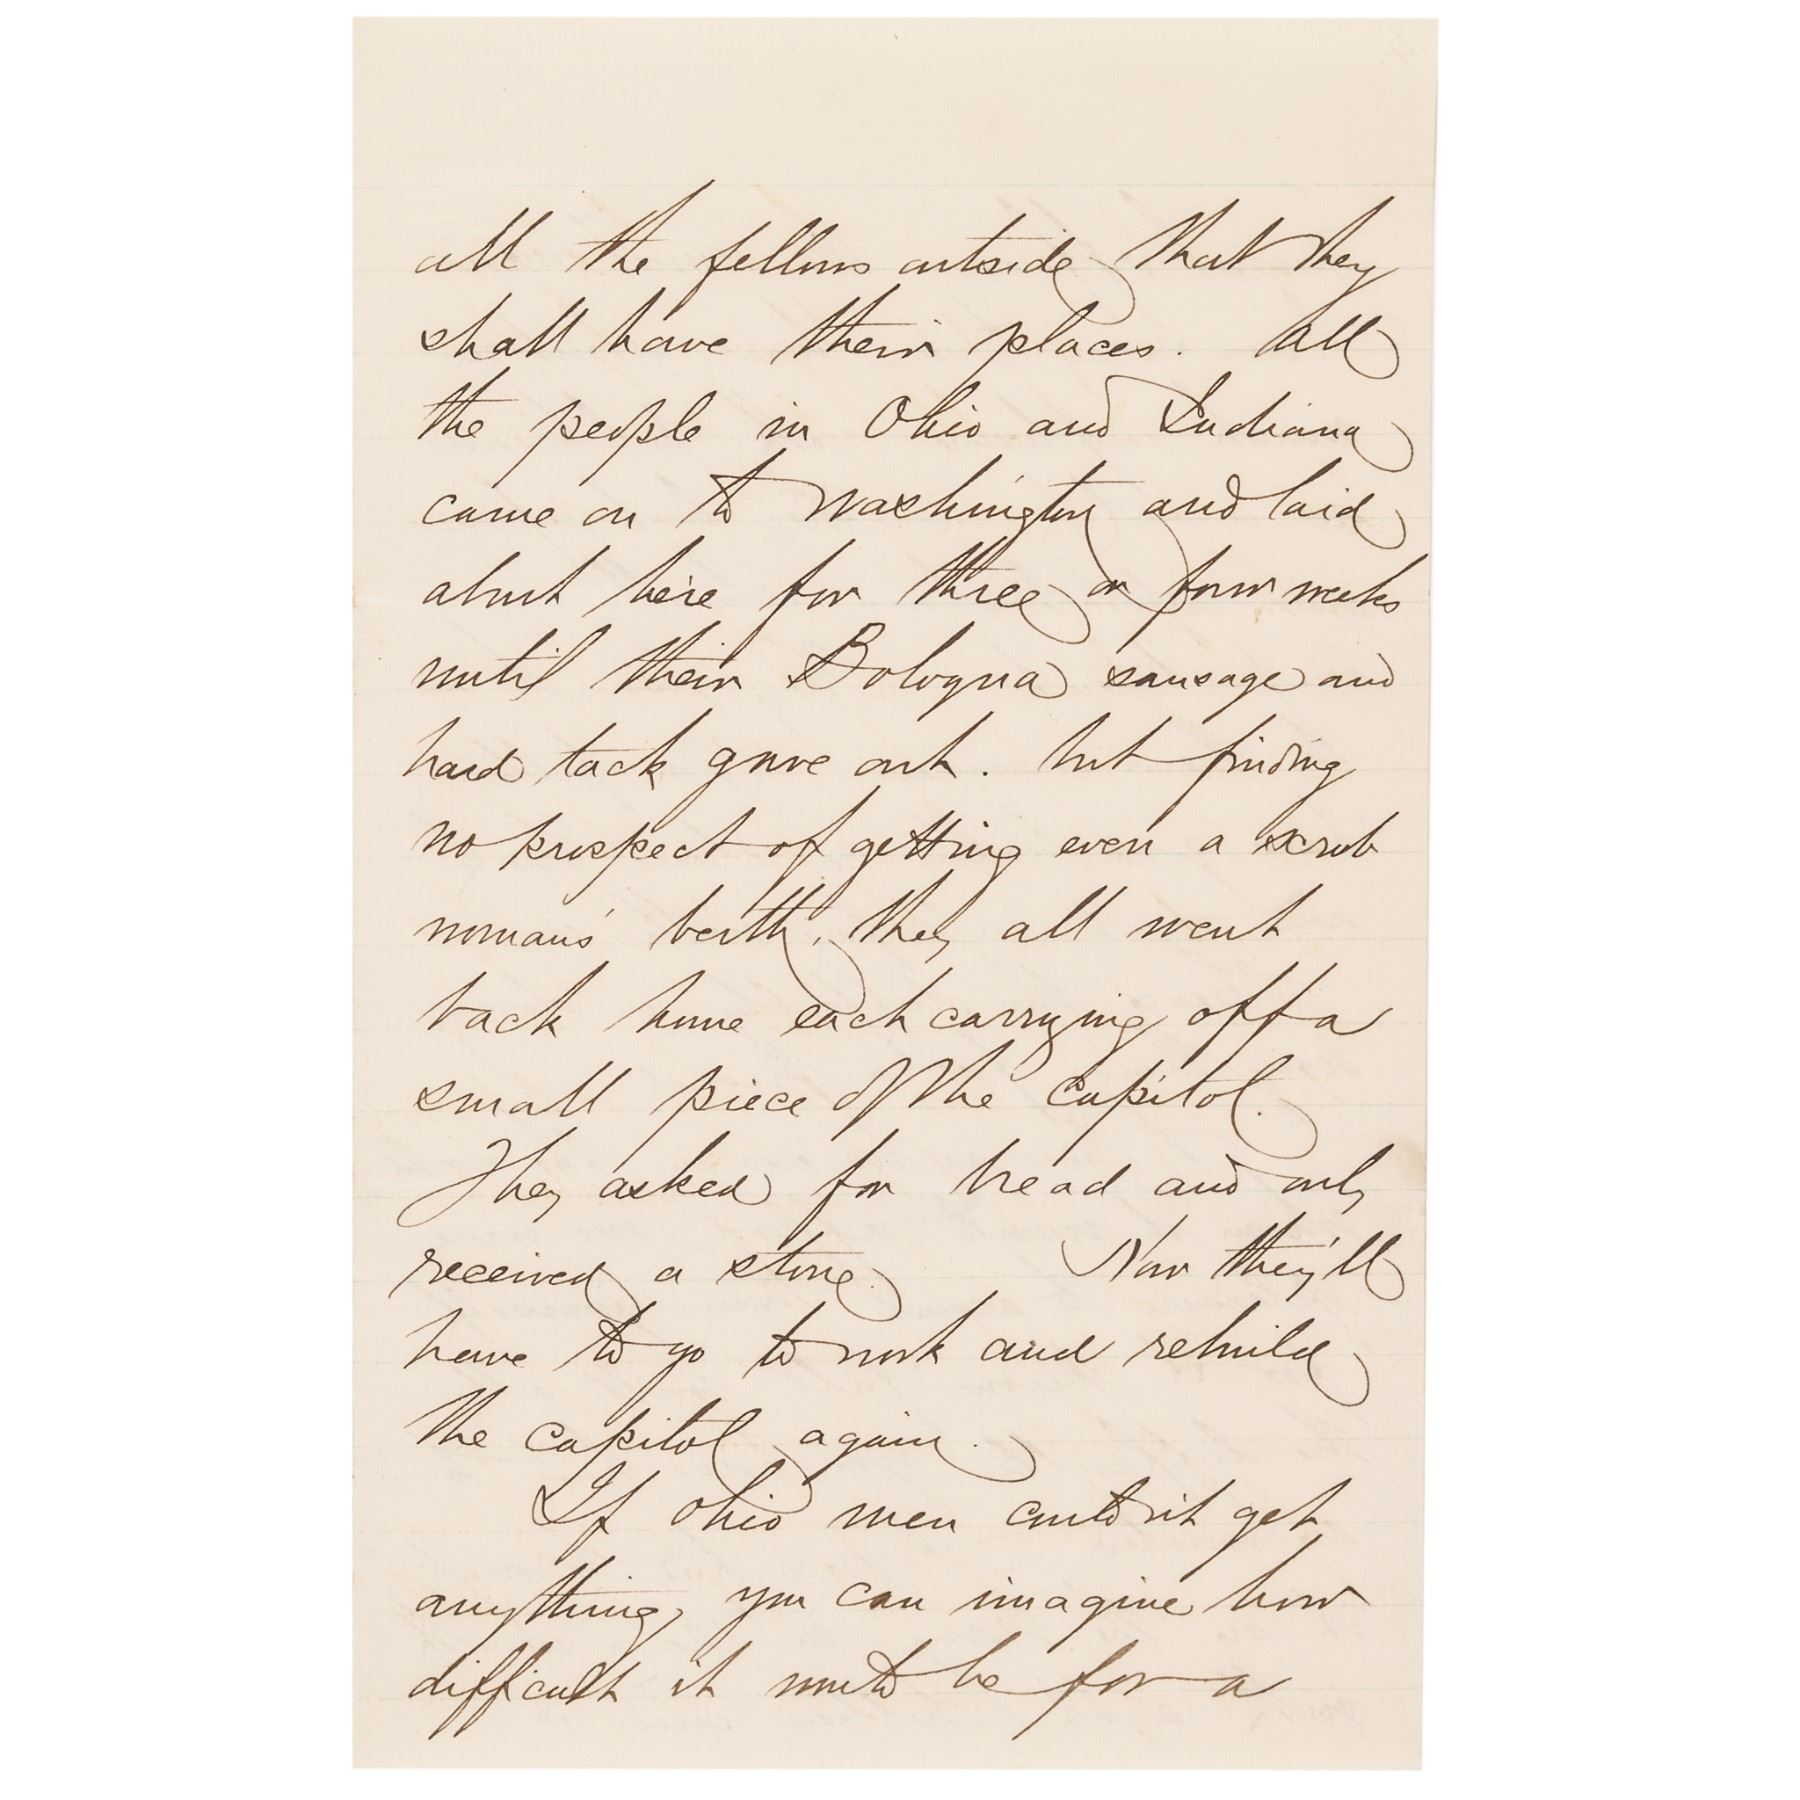 all the fellows outside that they
shall have their places. All
the people in Ohio and Indiana
came on to Washington and laid
about here for three or four weeks
until their Bologna sausage and
hard tack gave out. but finding
no prospect of getting even a scrub
womans' berth, they all went
back home each carrying off a
small piece of the Capitol.
They asked for bread and only
received a stone. Now they'll
have to go to work and rebuild
the capitol again.
If Ohio men couldn't get
anything, you can imagine how
difficult it would be for a